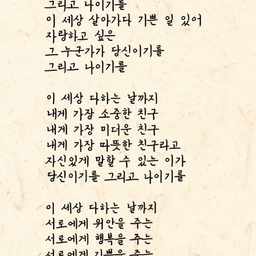 그리고 나이기를
이 세상 살아가다 기쁜 일 있어
자랑하고 싶은
그 누군가가 당신이기를
그리고 나이기를
이 세상 다하는 날까지
내게 가장 소중한 친구
내게 가장 미더운 친구
내게 가장 따뜻한 친구라고
자신있게 말할 수 있는 이가
당신이기를 그리고 나이기를
이 세상 다하는 날까지
서로에게 위안을 주는
서로에게 행복을 주는
서로에게 기쁨을 주는